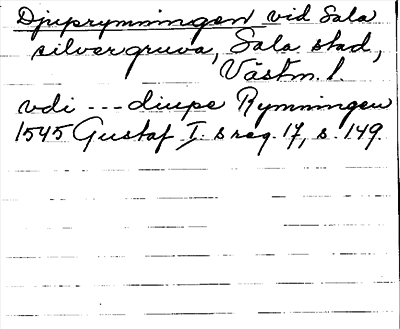 Djuprymningen vid Sala
silvergruva, Sala stad,
Västm. l.
vdi --- diupe Rymningen
1545 Gustaf I. s reg. 17, s. 149.